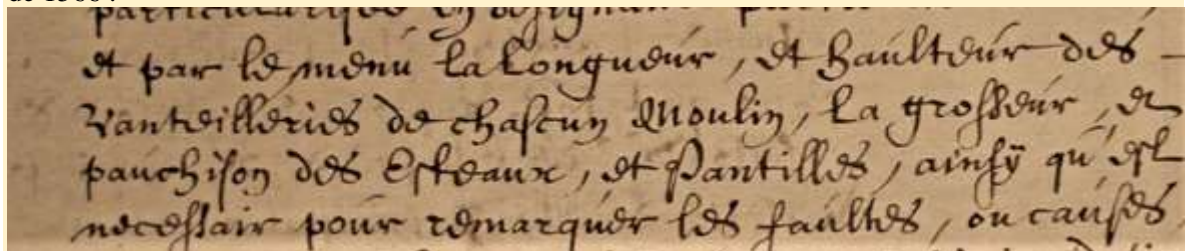 particularisé en designant
et par le menu la longueur, et haulteur des -
Vanteilleries de chascun Moulin, la grosseur, et
pauchison des Esteaux, et Vantilles, ainsÿ qu'est
necessair pour remarquer les faultes, ou causes